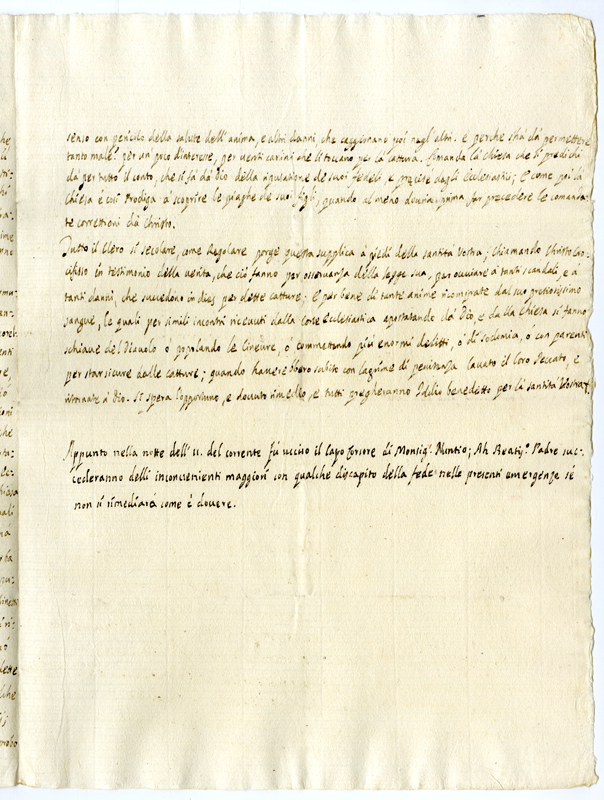 senso con pericolo della salute dell'anima, e altri danni, che caggionano poi negl'altri. e perche s'hà dà permettere
tanto male? per un poco d'interesse, per venti carlini che li toccano per la cattura. Comanda la Chiesa che si predichi
dà per tutto il conto, che si fà dà Dio della riputatione de suoi fedeli e precise degli Ecclesiastici; E come poi la
Chiesa è così prodiga à scoprire le piaghe de suoi figli, quando al meno dovria prima far precedere le comanda
te correttioni dà Christo.
Tutto il Clero sì secolare, come Regolare porge questa supplica à piedi della santità Vostra; chiamando Christo Cro-
cifisso in testimonio della verità, che ciò fanno per osservanza della legge sua, per ovviare à tanti scandali, e à
tanti danni, che succedono in dies per dette catture; E per bene di tante anime ricomprate dal suo pretiosissimo
sangue, le quali per simili incontri ricevuti dalla Corte Ecclesiastica apostatando dà Dio e da dà Chiesa si fanno
schiave del Diavolo ò popolando le Gineure, ò commettendo più enormi delitti, ò di sodomia, ò con parenti
per star sicure dalle catture; quando haverebbero subito con lagrime di penitenza lavato il loro peccato, e
ritornate à Dio. Si spera l'opportuno, e dovuto rimedio, e tutti pregheranno Iddio benedetto per la santità Vostra.
Appunto nella notte dell'11. del corrente fù ucciso il Capo Cursore di Monsig.r Nuntio; Ah Beatiss.o Padre suc-
cederanno delli inconvenienti maggiori con qualche discapito della fede nelle presenti emergenze se
non si rimediarà come è dovere.